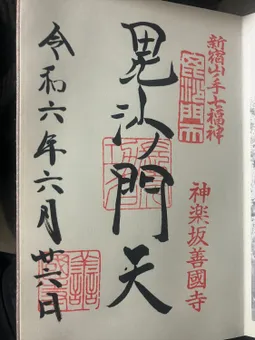 新宿山ノ手七福神
毘沙門天
神楽坂善國寺
令和六年六月廿六日